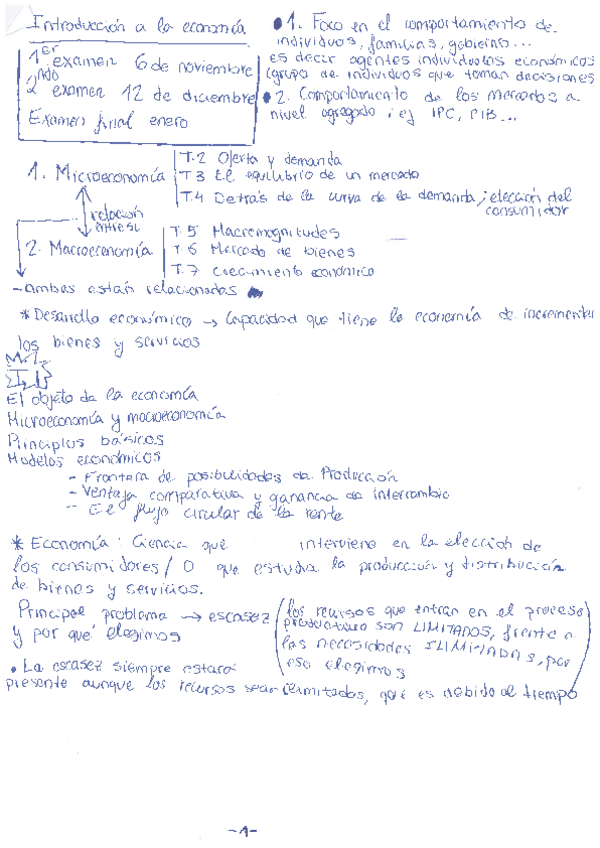 Introducción a la economía
1er examen 6 de noviembre
2ndo examen 12 de diciembre
Examen final enero
• 1. Foco en el comportamiento de
individuos, familias, gobierno...
es decir agentes individuales económicos
(grupo de individuos que toman decisiones
• 2. Comportamiento de los mercados a
nivel agregado; ej IPC, PIB...
1. Microeconomía
T.2 Oferta y demanda
T.3 El equilibrio de un mercado
T.4 Detrás de la curva de la demanda; elección del
consumidor
relación
entre si
2. Macroeconomía
T.5 Macromagnitudes
T.6 Mercado de bienes
T.7 Crecimiento económico
- Ambas están relacionadas
* Desarrollo económico → Capacidad que tiene la economía de incrementar
los bienes y servicios
El objeto de la economía
Microeconomía y macroeconomía
Principios básicos
Modelos económicos
- Frontera de posibilidades de Producción
- Ventaja comparativa y ganancia de intercambio
- El flujo circular de la renta
* Economía: Ciencia que interviene en la elección de
los consumidores / O que estudia la producción y distribución
de bienes y servicios.
Principal problema → escasez
y por qué elegimos
(los recursos que entran en el proceso
productivo son LIMITADOS, frente a
las necesidades ILIMITADAS, por
eso elegimos
• La escasez siempre estará
presente aunque los recursos sean ilimitados, que es debido al tiempo
-1-